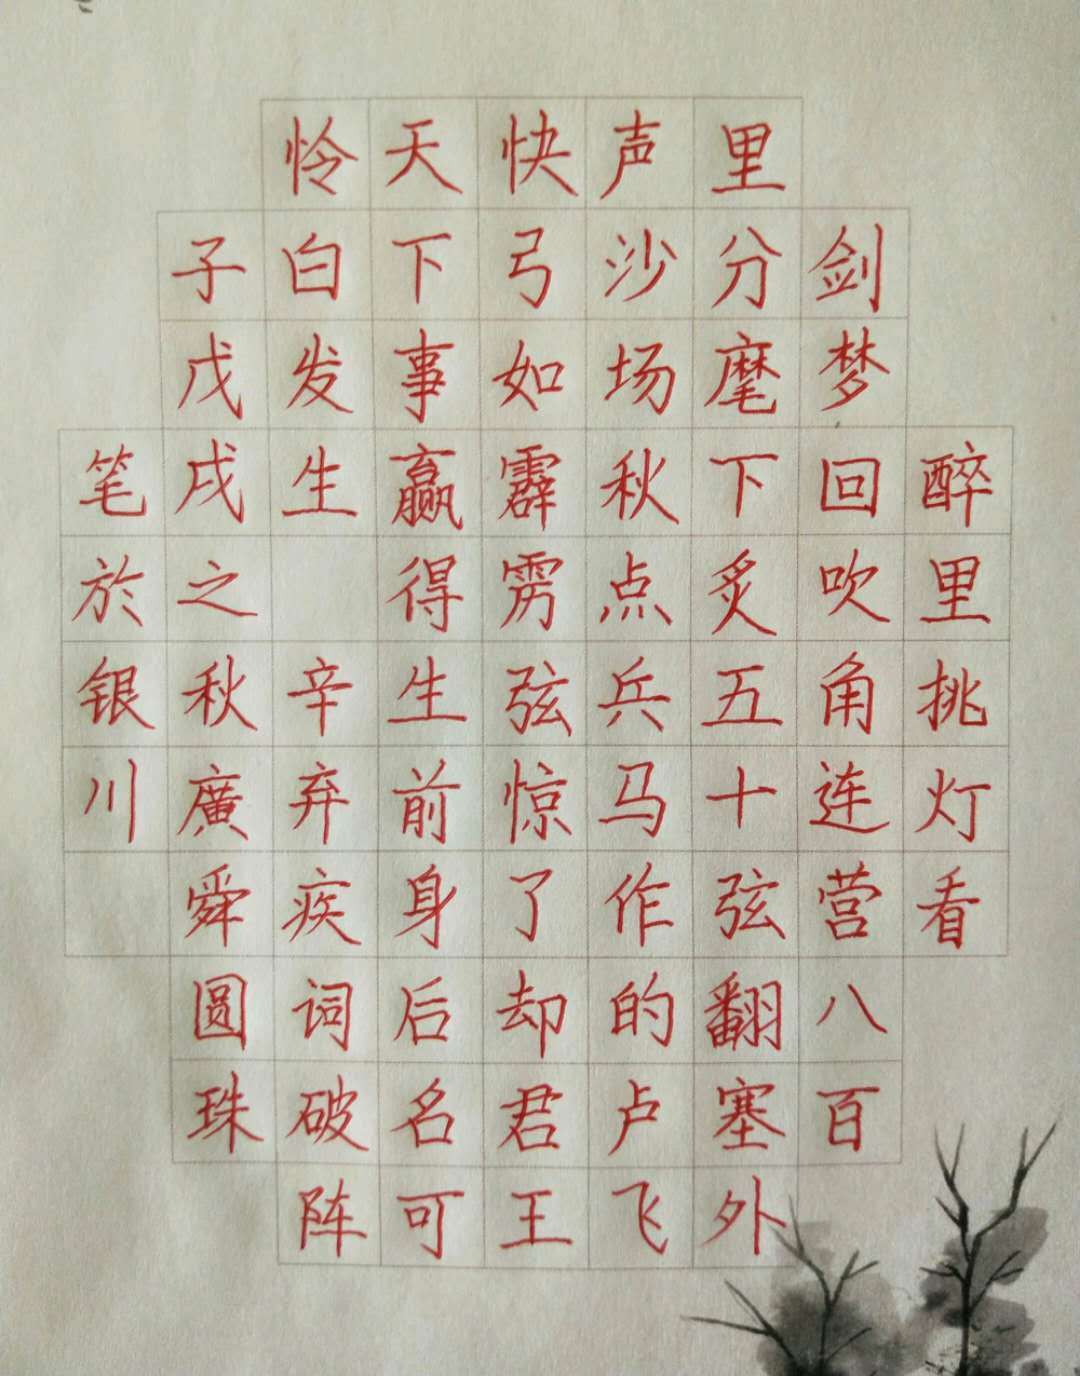 醉里挑灯看
剑梦回吹角连营八百
里分麾下炙五十弦翻塞外
声沙场秋点兵马作的卢飞
快弓如霹雳弦惊了却君王
天下事赢得生前身后名可
怜白发生 辛弃疾词破阵
子戊戌之秋廣舜圆珠
笔於银川